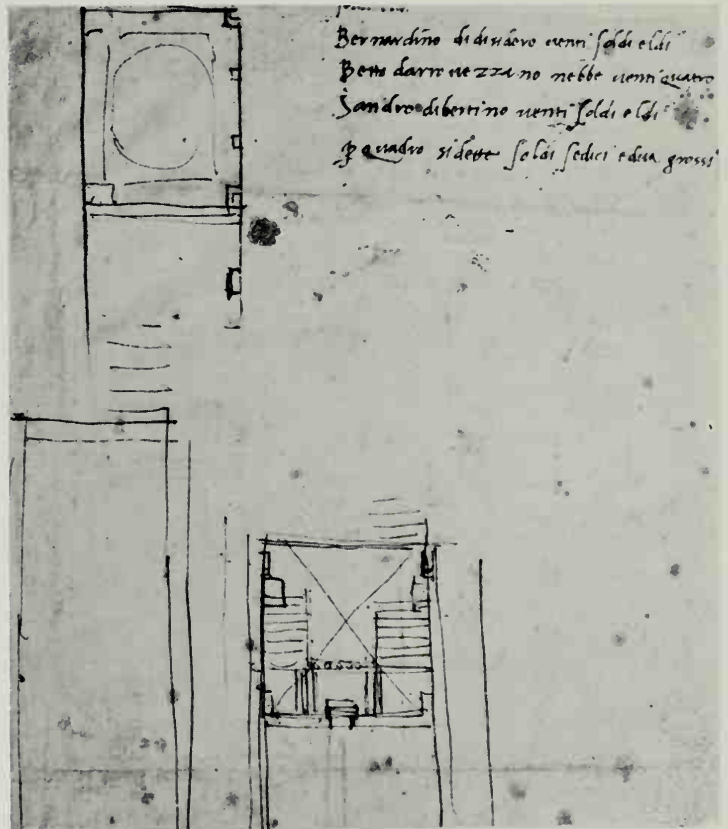 Bernardino didisidero venti soldi eldi
Betto darro vezzano nebbe venti quatro
Sandro dibertino venti soldi eldi
quadro si dette soldi sedici e dua grossi